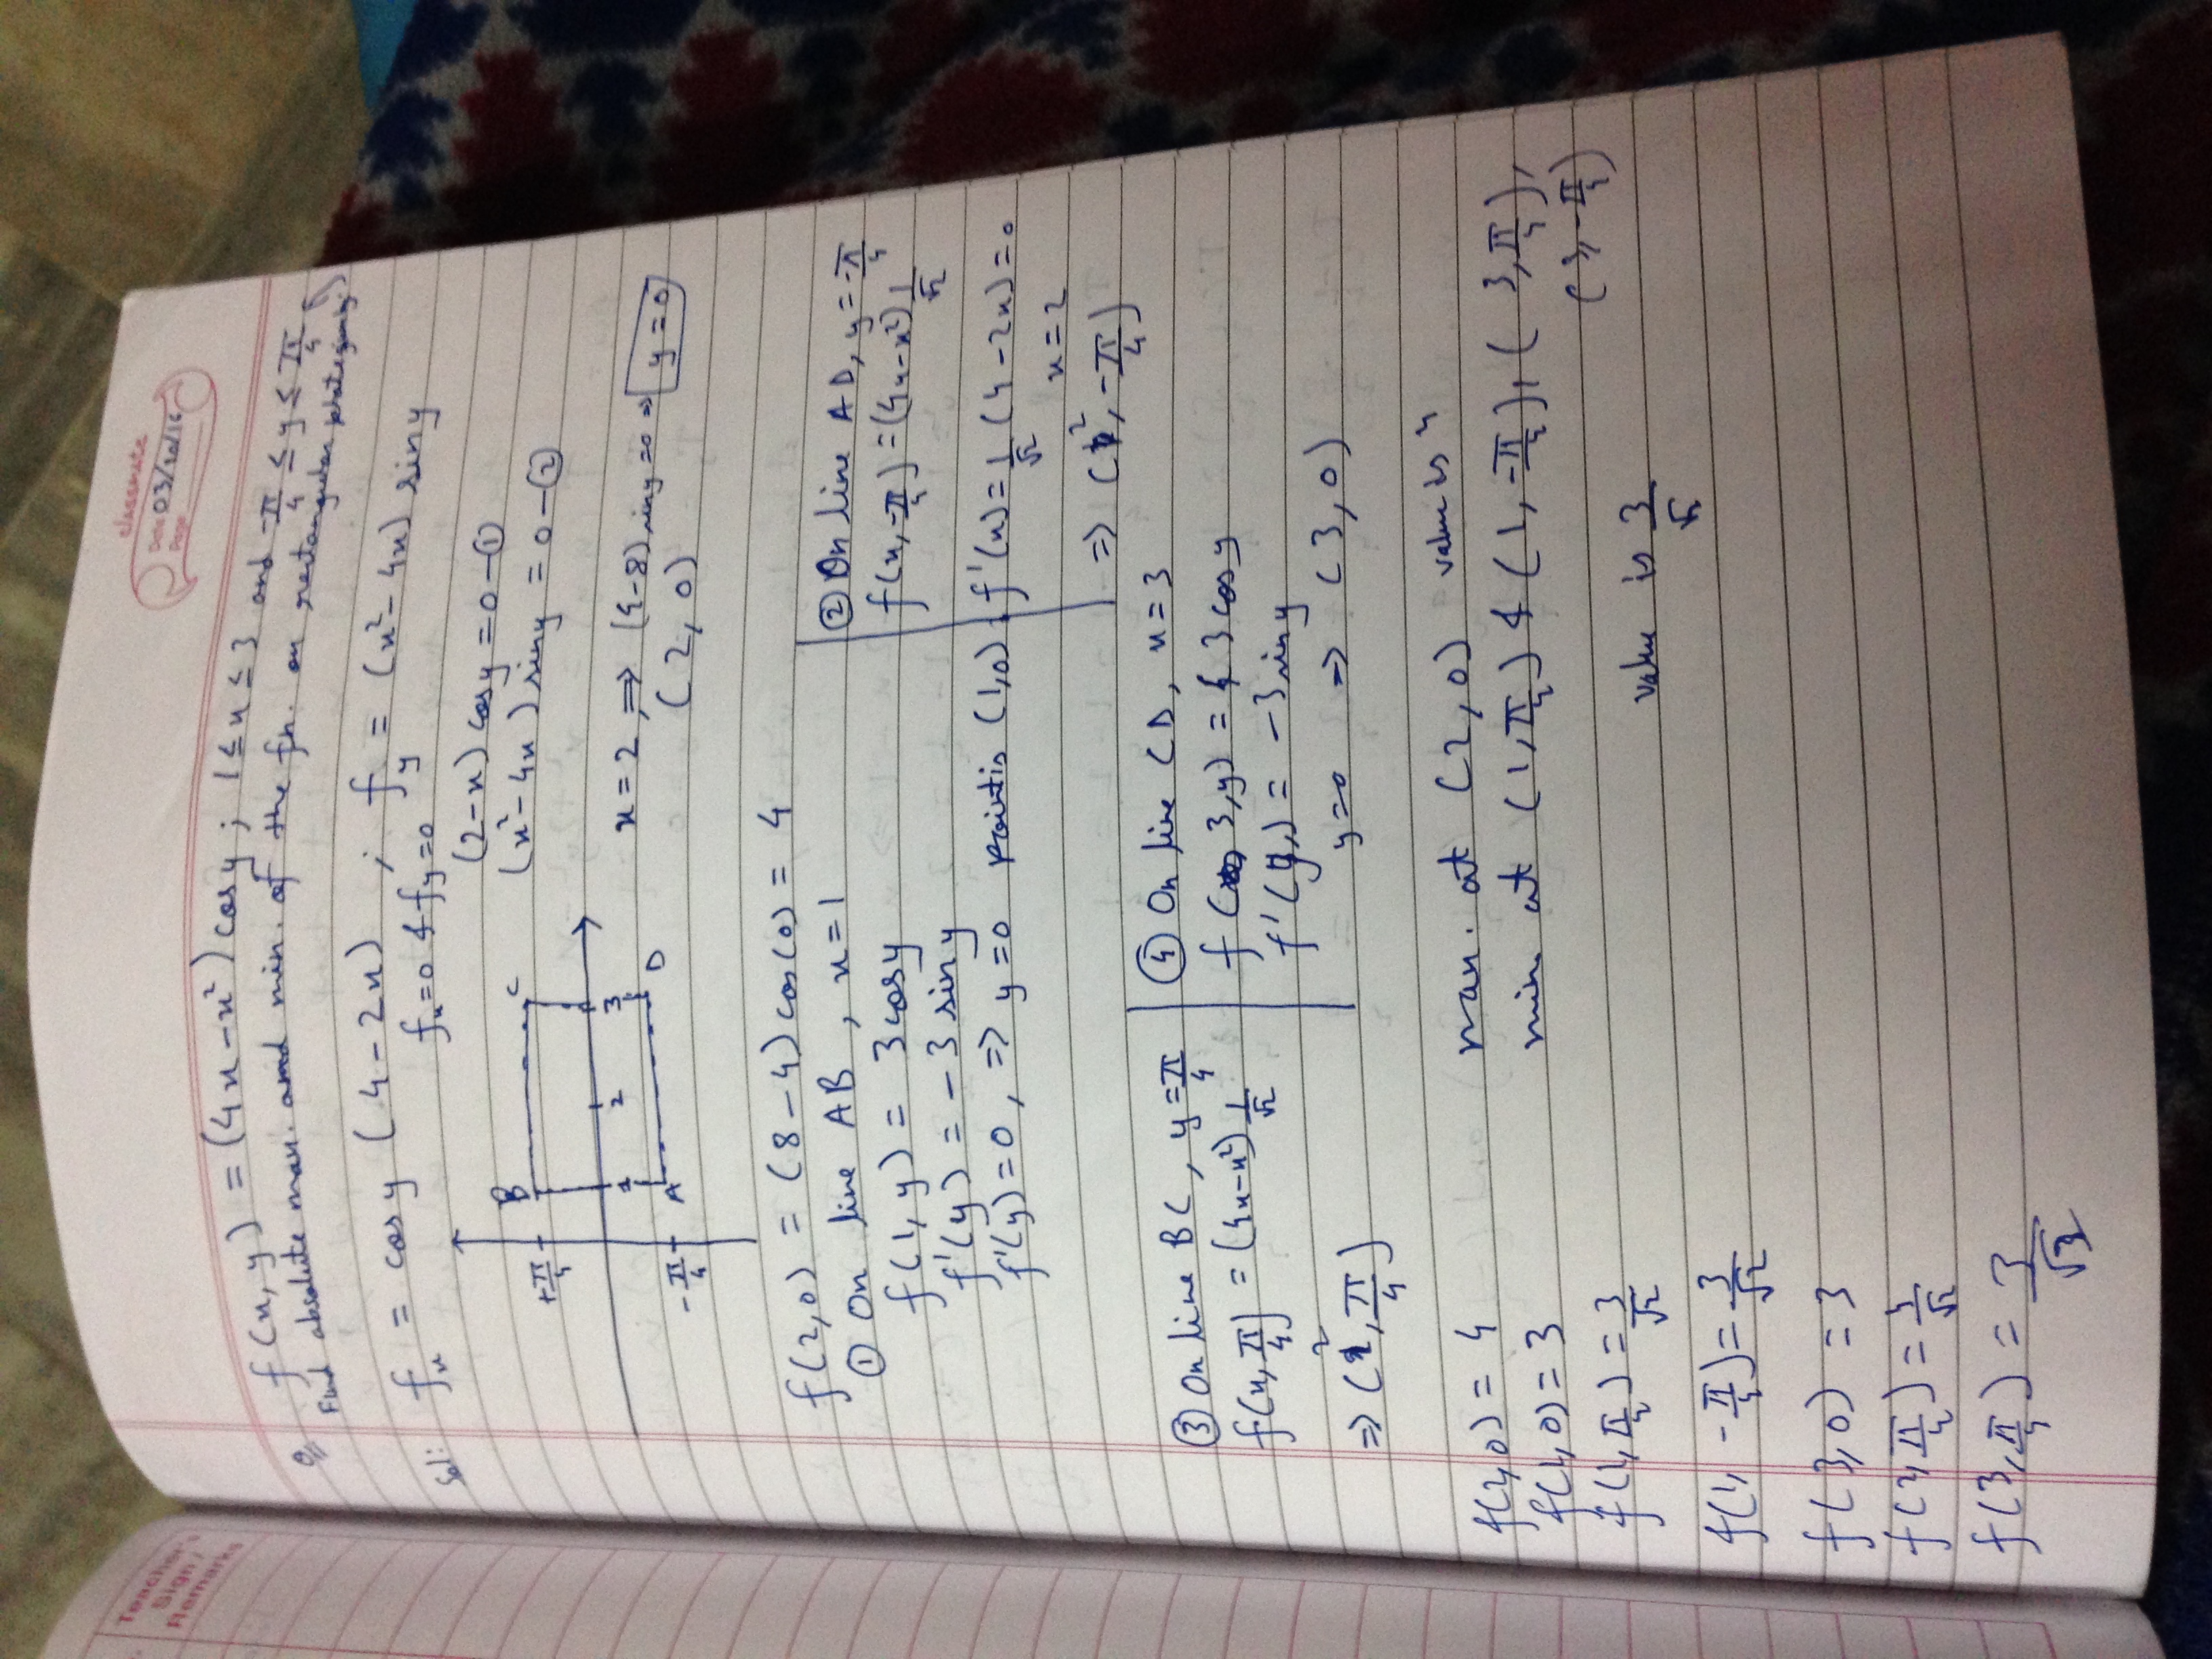 Teacher's
Sign/
Remarks
classmate
Date 03/10/16
Page
Q f(x, y) = (4x-x²) cos y ; 1 ≤ x ≤ 3 and -π/4 ≤ y ≤ π/4
Find absolute max. and min. of the fn. on rectangular plate
Sol: f_x = cos y (4-2x) ; f_y = (x²-4x) sin y
f_x=0 & f_y=0
(2-x) cos y = 0 - ①
(x²-4x) sin y = 0 - ②
B C
+π/4
1 2 3
-π/4 A D
x = 2, ⇒ (4-8) sin y = 0 ⇒ y = 0
(2, 0)
f(2, 0) = (8-4) cos(0) = 4
① On line AB, x = 1
f(1, y) = 3 cos y
f'(y) = -3 sin y
f'(y) = 0, ⇒ y = 0 point is (1,0)
② On line AD, y = -π/4
f(x, -π/4) = (4x-x²) 1/√2
f'(x) = 1/√2 (4-2x) = 0
x = 2
⇒ (2, -π/4)
③ On line BC, y = π/4
f(x, π/4) = (4x-x²) 1/√2
⇒ (2, π/4)
④ On line CD, x = 3
f(3, y) = 3 cos y
f'(y) = -3 sin y
y=0 ⇒ (3, 0)
f(2,0) = 4
f(1,0) = 3
f(1, π/4) = 3/√2
f(1, -π/4) = 3/√2
f(3, 0) = 3
f(2, π/4) = 4/√2
f(3, π/4) = 3/√2
max. at (2,0) value is 4
min at (1, π/4) & (1, -π/4), (3, π/4),
(3, -π/4)
value is 3/√2